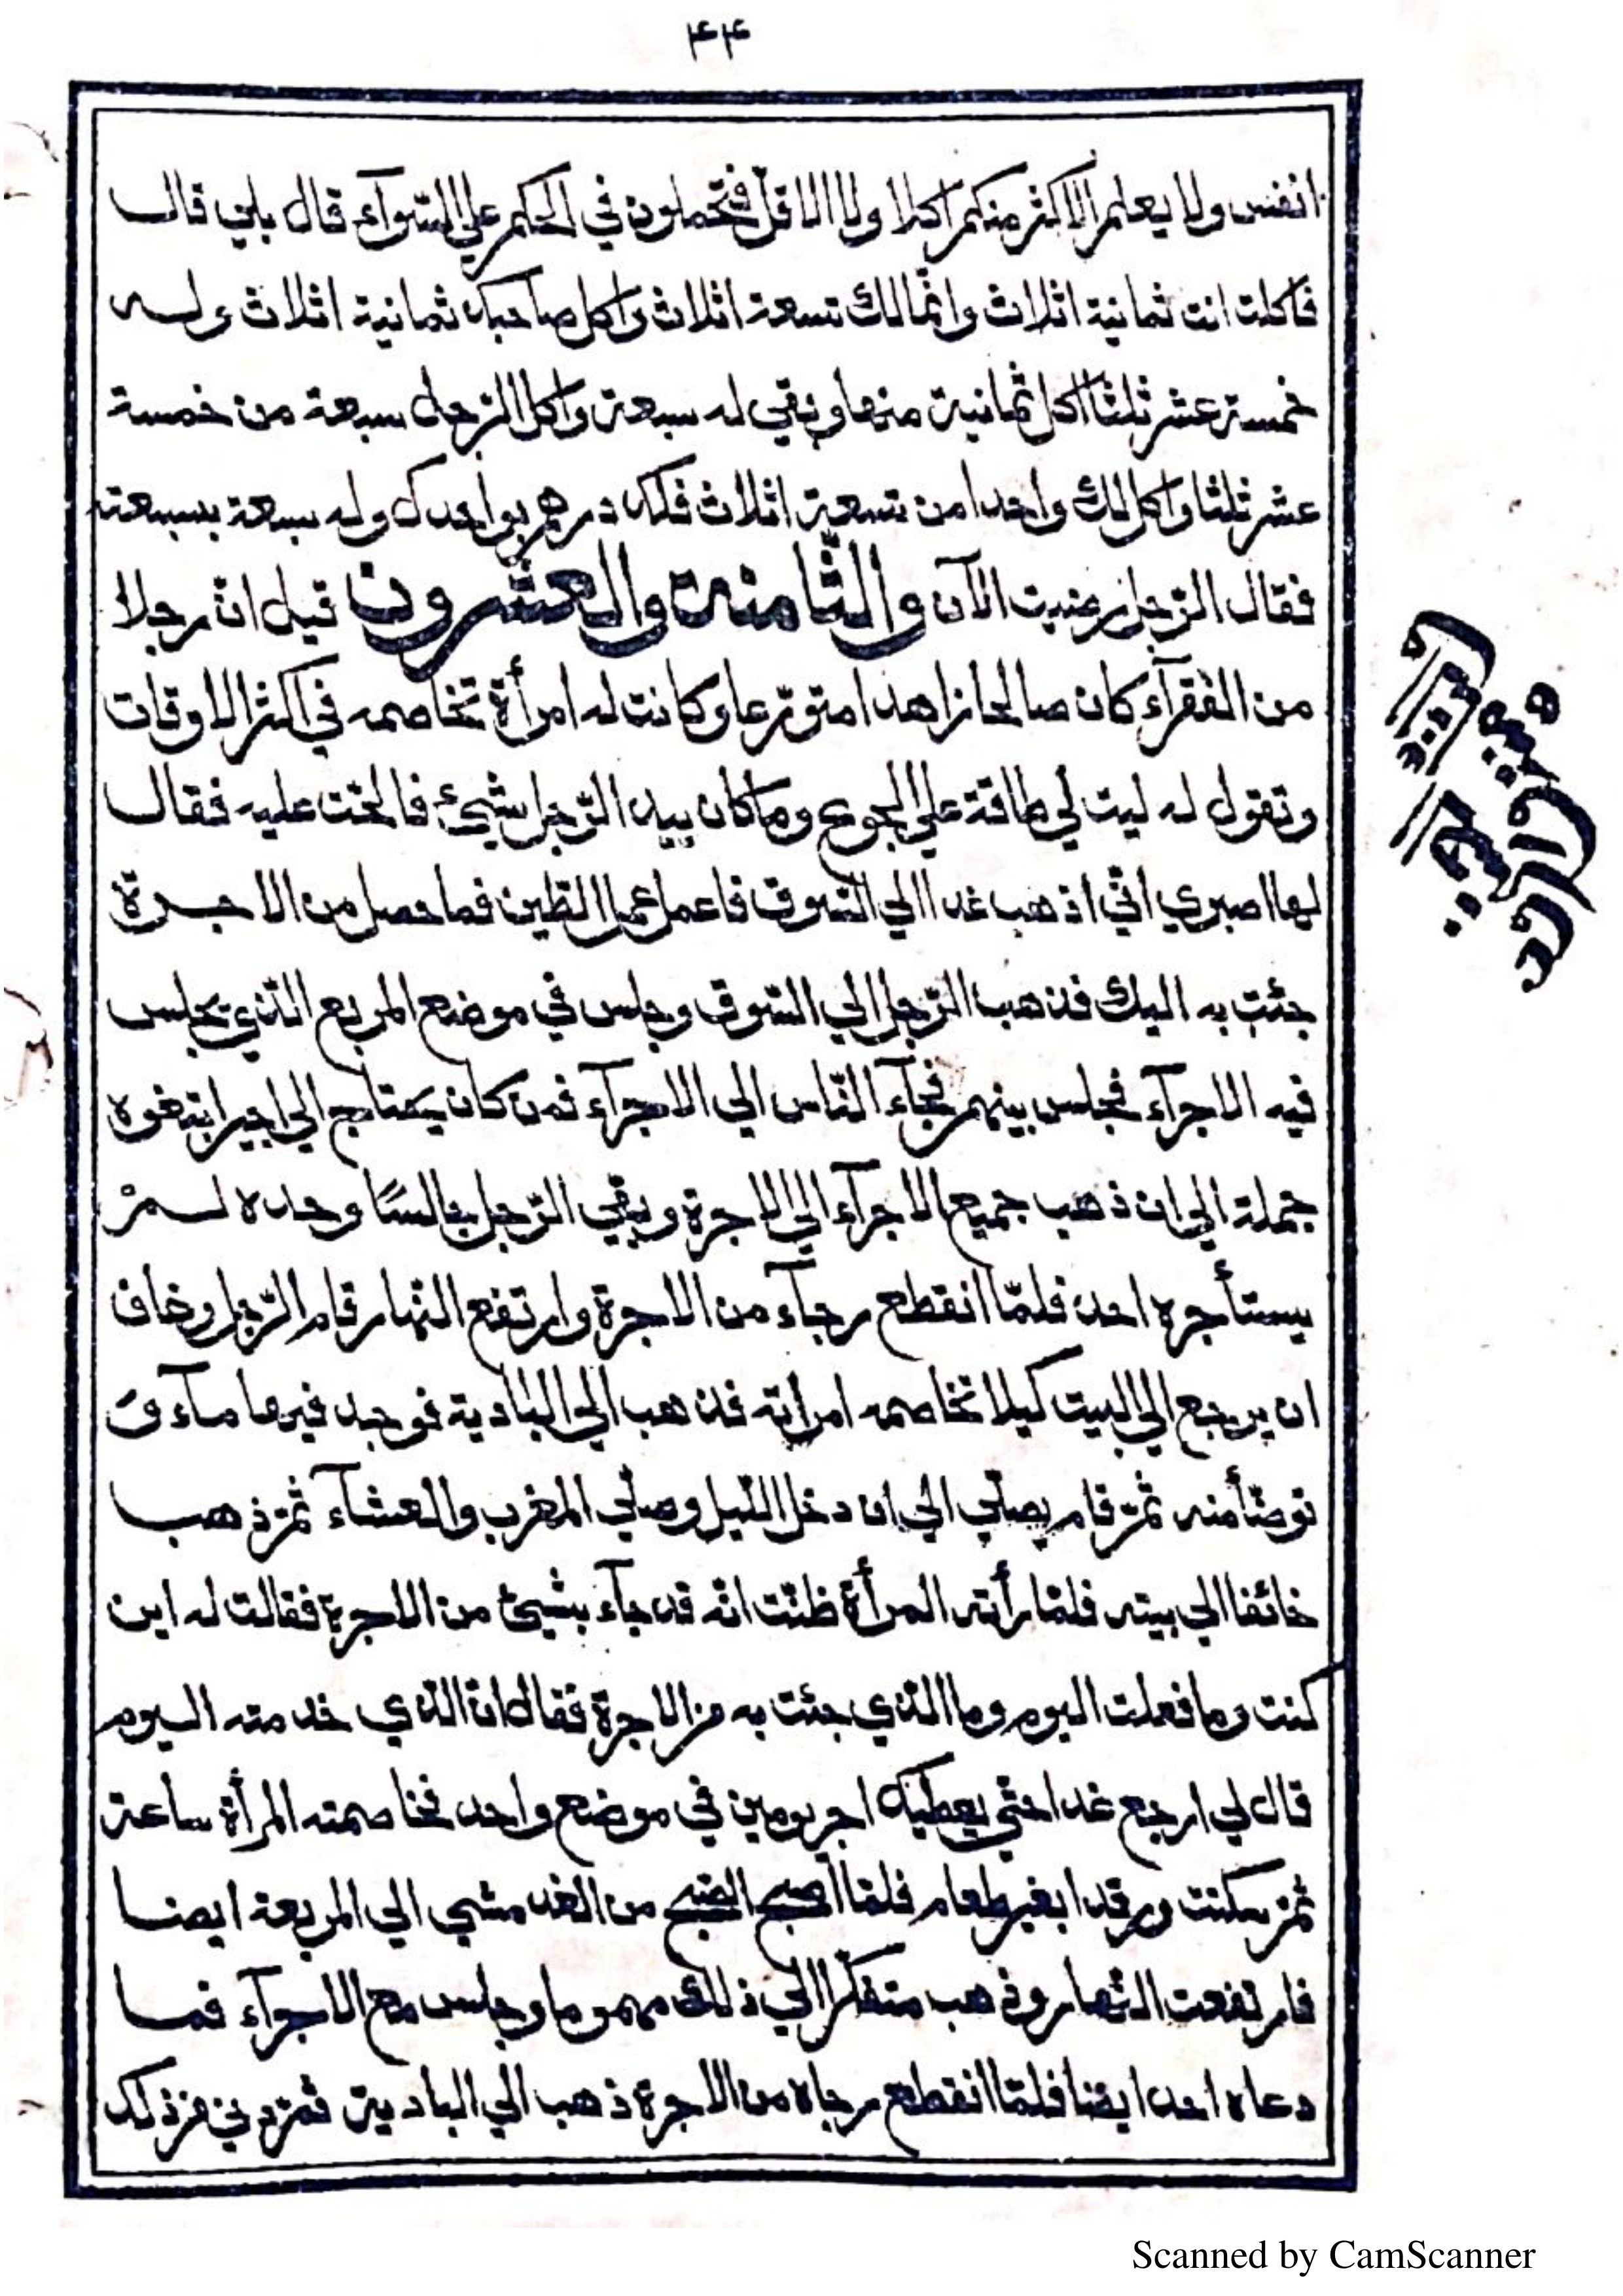 ۴۴
انفس ولا يعلم الاكثر منكم اكلا ولا الاقلّ فتحملون في الحكم علي السّوآء قال بلي قال
فاكلت انت ثمانية اثلاث وانّما لك تسعة اثلاث واكل صاحبك ثمانية اثلاث وله
خمسة عشر ثلثا اكل ثمانية منها وبقي له سبعة واكل الرّجل سبعة من خمسة
عشر ثلثا واكل لك واحدا من تسعة اثلاث فلك درهم بواحدك وله سبعة بسبعة
فقال الرّجل رضيت الآن والثّامنة والعشرون قيل انّ رجلا
من الفقرآء كان صالحا زاهدا متورّعا وكانت له امرأة تخاصمه في اكثر الاوقات
وتقول له ليت لي طاقة علي الجوع وما كان بيد الرّجل شيئ فالحّت عليه فقال
لها اصبري انّي اذهب غدا الي السّوق فاعمل عمل الطّين فما حصل من الاجرة
جئت به اليك فذهب الرّجل الي السّوق وجلس في موضع المربع الّذي يجلس
فيه الاجرآء فجلس بينهم فجآء النّاس الي الاجرآء فمن كان يحتاج الي اجير ابتغوه
جملة الي ان ذهب جميع الاجرآء الي الاجرة وبقي الرّجل جالسًا وحده لمْ
يستأجره احد فلمّا انقطع رجآء من الاجرة وارتفع النّهار قام الرّجل وخاف
ان يرجع الي البيت كيلا تخاصمه امرأته فذهب الي البادية فوجد فيها مآء و
توضّأ منه ثمّ قام يصلّي الي ان دخل اللّيل وصلّي المغرب والعشآء ثمّ ذهب
خائفا الي بيته فلمّا رأته المرأة ظنّت انّه قد جآء بشيئ من الاجرة فقالت له اين
كنت وما فعلت اليوم وما الّذي جئت به من الاجرة فقال انّ الّذي خدمته اليوم
قال لي ارجع غدا حتّي يعطيك اجر يومين في موضع واحد فخاصمته المرأة ساعة
ثمّ سكنت ورقدا بغير طعام فلمّا اصبح الصّبح من الغد مشي الي المربعة ايضا
فارتفعت النّهار وذهب متفكّرا الي ذلك مهموما وجلس مع الاجرآء فما
دعاه احد ايضا فلمّا انقطع رجاه من الاجرة ذهب الي البادية فتمرد في من ذلك
Scanned by CamScanner